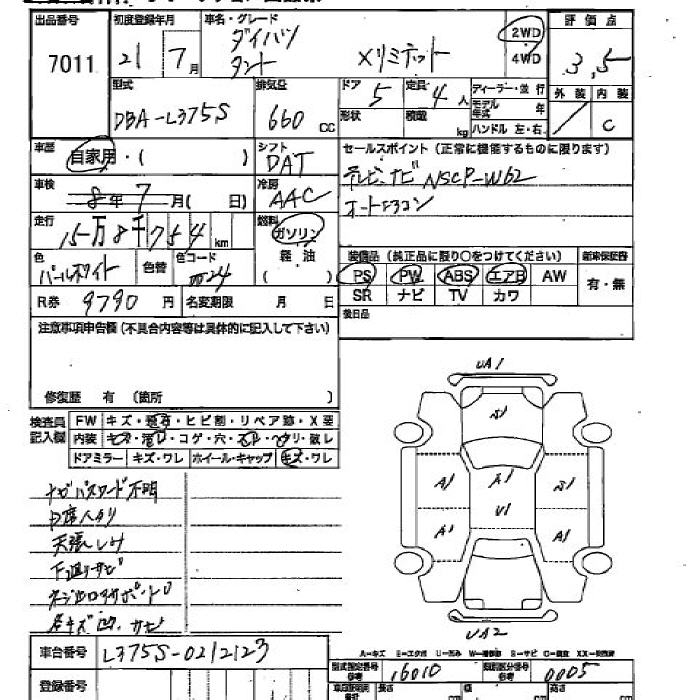 出品番号 初度登録年月 車名・グレード 評価点
7011 21 7月 ダイハツ タント Xリミテッド 2WD 4WD 3.5
型式 排気量 ドア 5 定員 4人 ディーラー・並行 外装 内装
DBA-L375S 660 CC 形状 積載 kg モデル年式 年 C
ハンドル 左・右
車歴 自家用・( ) シフト DAT セールスポイント(正常に機能するものに限ります)
車検 8年7月( 日) 冷房 AAC テレビナビ NSCP-W62
走行 15万8千754km 燃料 ガソリン 軽油 ( ) オートエアコン
色 パールホワイト 色替 色コード W24 装備品(純正品に限り○をつけてください) 新車保証書
PS PW ABS エアB AW 有・無
R券 9790円 名変期限 月 日 SR ナビ TV カワ
注意事項申告欄(不具合内容等は具体的に記入して下さい) 後日品
修復歴 有 (箇所 )
検査員記入欄 FW キズ・飛石・ヒビ割・リペア跡・X要
内装 キズ・汚レ・コゲ・穴・ ・ ・破レ
ドアミラー キズ・ワレ ホイール・キャップ キズ・ワレ
UA1
A1
A1 A1 A1
U1
A1 A1
UA2
ナビパスワード不明
天張しみ
下廻りサビ
車台番号 L375S-0212123
A-キズ E-エクボ U-凹み S-サビ
型式指定番号 参考 16010 類別区分番号 参考 0005
登録番号 長さ cm 幅 cm 高さ cm